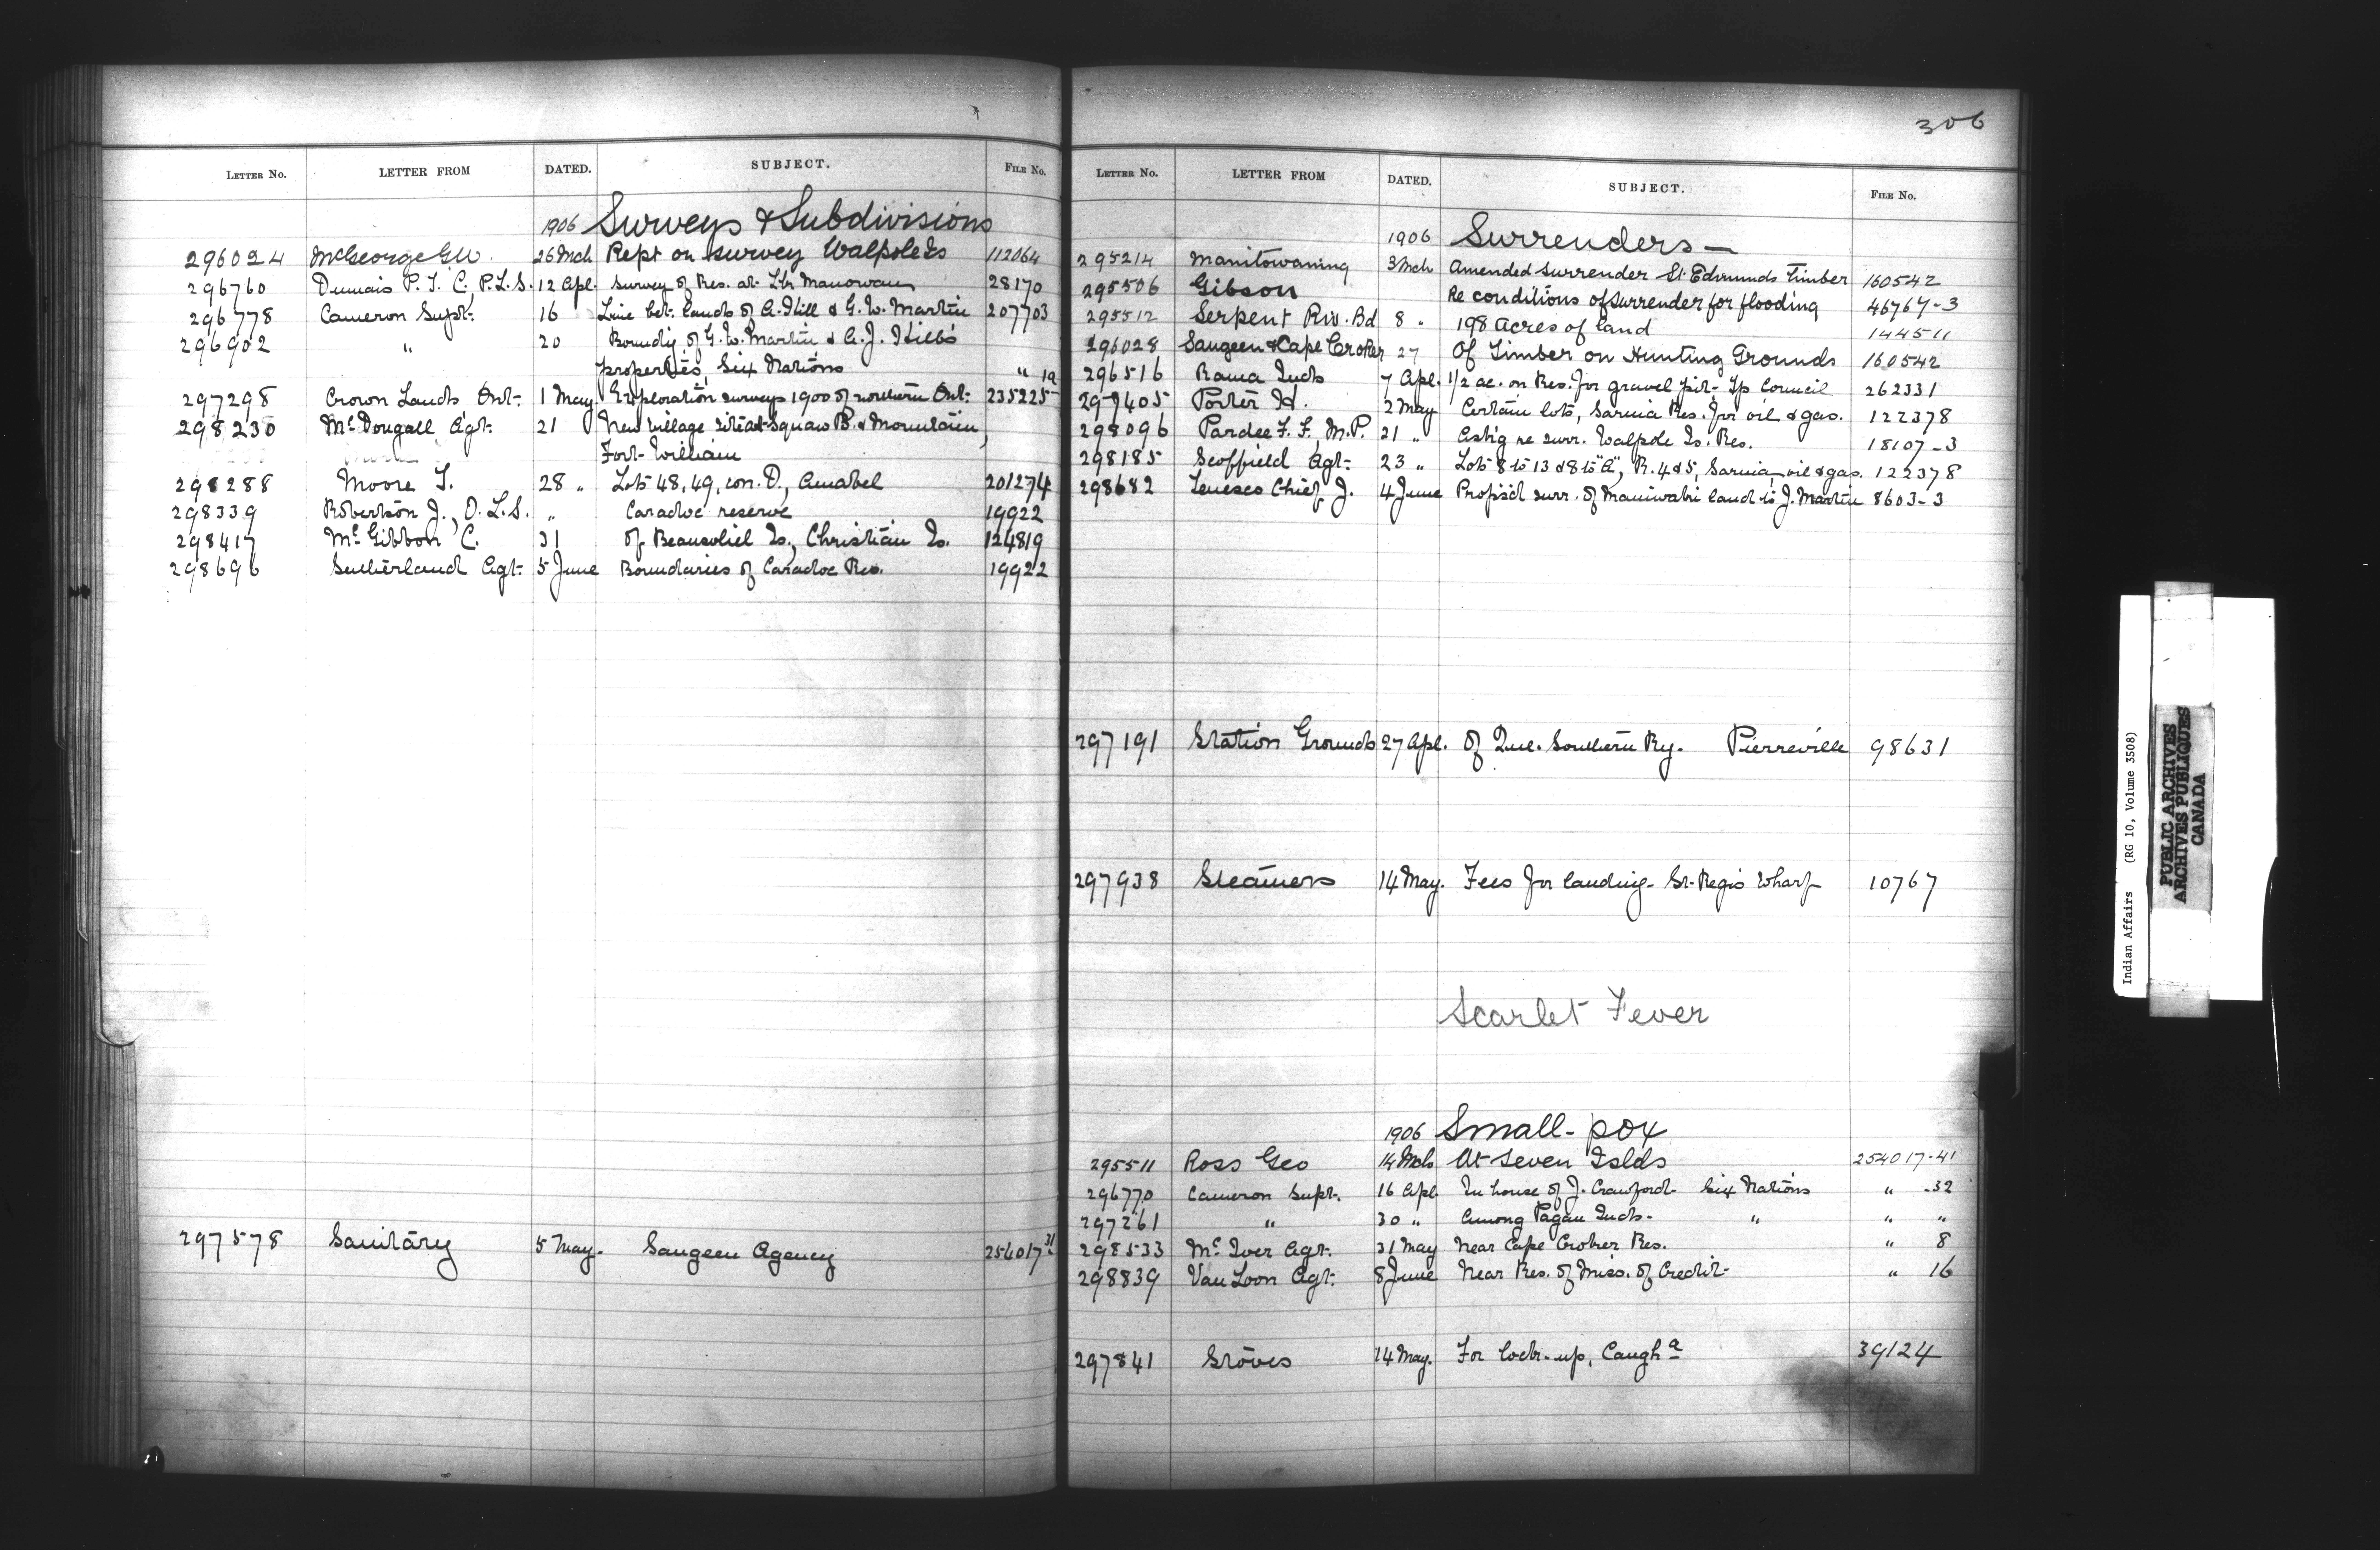 LETTER No. LETTER FROM DATED. SUBJECT. FILE No.
1906 Surveys & Subdivisions
296024 McGeorge G.W. 26 Mch Rept on survey Walpole Is 112064
296760 Dumais P. T. C., P.L.S. 12 Apl. Survey of Res. at Manowan 28170
296778 Cameron Supt. 16 Line bet. lands of A. Hill & G. W. Martin 207703
296902 " 20 Boundy of G. W. Martin & A. J. Hill's
properties, Six Nations "
297298 Crown Lands Ont. 1 May. Exploration surveys 1900 of northern Ont. 235225-1a
298230 McDougall Agt. 21 New village site at Squaw B. & Mountain,
Fort William
298288 Moore T. 28 " Lots 48, 49, con. D., Amabel 201274
298339 Robertson J., O.L.S. " Caradoc reserve 19922
298417 McGibbon C. 31 of Beausoliel Is., Christian Is. 124819
298696 Sutherland Agt. 5 June Boundaries of Caradoc Res. 19922
297578 Sanitary 5 May. Saugeen Agency 254017-31
306
LETTER No. LETTER FROM DATED. SUBJECT. FILE No.
1906 Surrenders —
295214 Manitowaning 3 Mch Amended surrender St. Edmunds Timber 160542
295506 Gibson Re conditions of surrender for flooding 46767-3
295512 Serpent Riv. Bd 8 " 198 acres of land 144511
296028 Saugeen & Cape Croker 27 Of Timber on Hunting Grounds 160542
296516 Rama Inds 7 Apl. 1/2 ac. on Res. for gravel pit - Tp Council 262331
297405 Porter H. 2 May Certain lots, Sarnia Res. for oil & gas. 122378
298096 Pardee F. F., M.P. 21 " Ask'g re surr. Walpole Is. Res. 18107-3
298185 Scoffield Agt. 23 " Lots 8 to 13 & 8 to "A", R. 4 & 5, Sarnia, oil & gas. 122378
298682 Tenesco Chief J. 4 June Propos'd surr. of Maniwaki land to J. Martin 8603-3
297191 Station Grounds 27 Apl. Of Que. Southern Ry. Pierreville 98631
297938 Steamers 14 May. Fees for landing - St. Regis Wharf 10767
Scarlet Fever
1906 Small-pox
295511 Ross Geo 14 Mch At Seven Islds 254017-41
296770 Cameron Supt. 16 Apl. In house of J. Crawford - Six Nations " -32
297261 " 30 " Among Pagan Inds - " " "
298533 McIver Agt. 31 May Near Cape Croker Res. " 8
298839 Van Loon Agt. 8 June Near Res. of Miss. of Credit - " 16
297841 Stoves 14 May. For lock-up, Caugha 39124
Indian Affairs (RG 10, Volume 3508)
PUBLIC ARCHIVES
ARCHIVES PUBLIQUES
CANADA